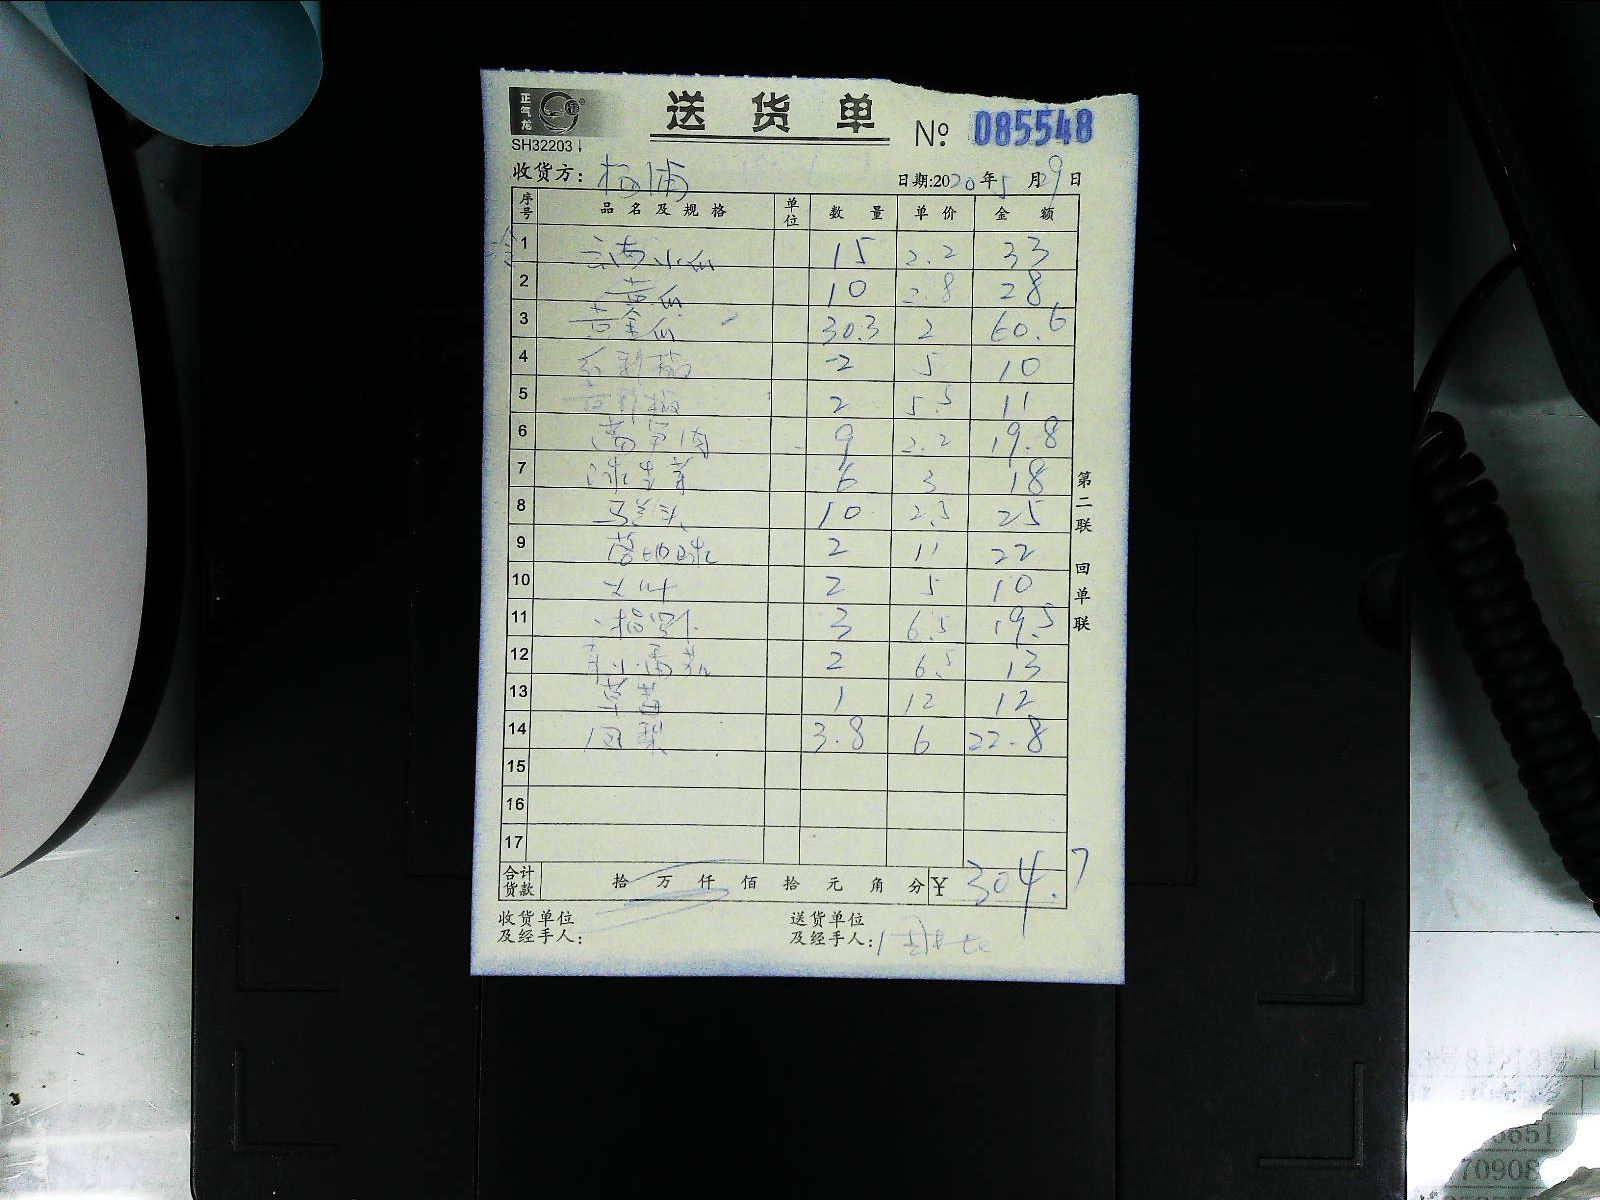 正气龙
送货单
№ 085548
SH32203
收货方:
日期:2020年5月29日
序号 品名及规格 单位 数量 单价 金额
1 云南小瓜 15 2.2 33
2 黄瓜 10 2.8 28
3 黄金瓜 30.3 2 60.6
4 红彩椒 2 5 10
5 黄彩椒 2 5.5 11
6 莴笋肉 9 2.2 19.8
7 球生菜 6 3 18
8 10 2.5 25
9 2 11 22
10 2 5 10
11 3 6.5 19.5
12 2 6.5 13
13 草莓 1 12 12
14 凤梨 3.8 6 22.8
15
16
17
合计货款 拾 万 仟 佰 拾 元 角 分 ¥ 304.7
收货单位及经手人:
送货单位及经手人:
第二联 回单联
70908